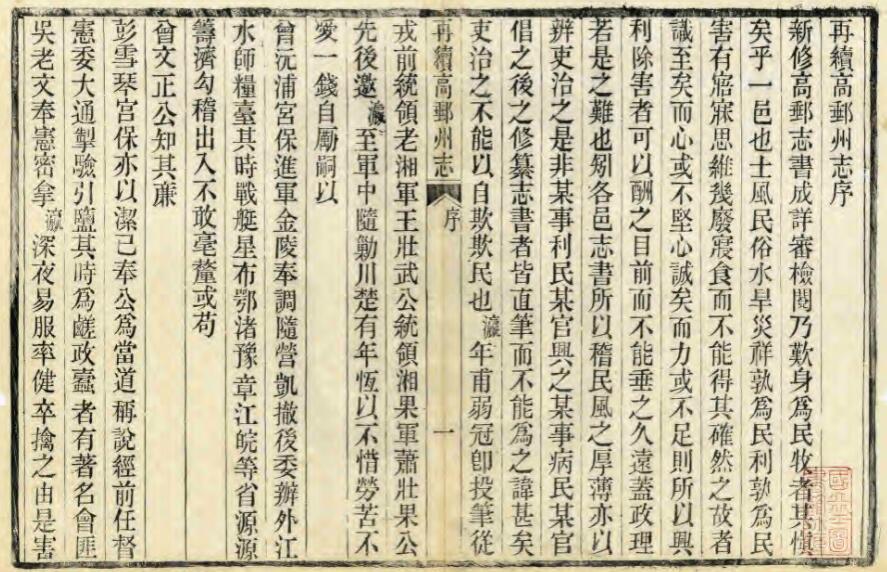 再續高郵州志序
新修高郵志書成詳審檢閱乃歎身為民牧者其慎
矣乎一邑也士風民俗水旱災祥孰為民利孰為民
害有寤寐思維幾廢寢食而不能得其確然之故者
識至矣而心或不堅心誠矣而力或不足則所以興
利除害者可以酬之目前而不能垂之久遠蓋政理
若是之難也矧各邑志書所以稽民風之厚薄亦以
辨吏治之是非某事利民某官興之某事病民某官
倡之後之修纂志書者皆直筆而不能為之諱甚矣
吏治之不能以自欺欺民也瀛年甫弱冠即投筆從
再續高郵州志
序
一
戎前統領老湘軍王壯武公統領湘果軍蕭壯果公
先後邀瀛至軍中隨勦川楚有年恆以不惜勞苦不
愛一錢自勵嗣以
曾沅浦宮保進軍金陵奉調隨營凱撤後委辦外江
水師糧臺其時戰艇星布鄂渚豫章江皖等省源源
籌濟勾稽出入不敢毫釐或苟
曾文正公知其廉
彭雪琴宮保亦以潔己奉公為當道稱說經前任督
憲委大通掣驗引鹽其時為鹺政蠹者有著名會匪
吳老文奉憲密拿瀛深夜易服率健卒擒之由是害